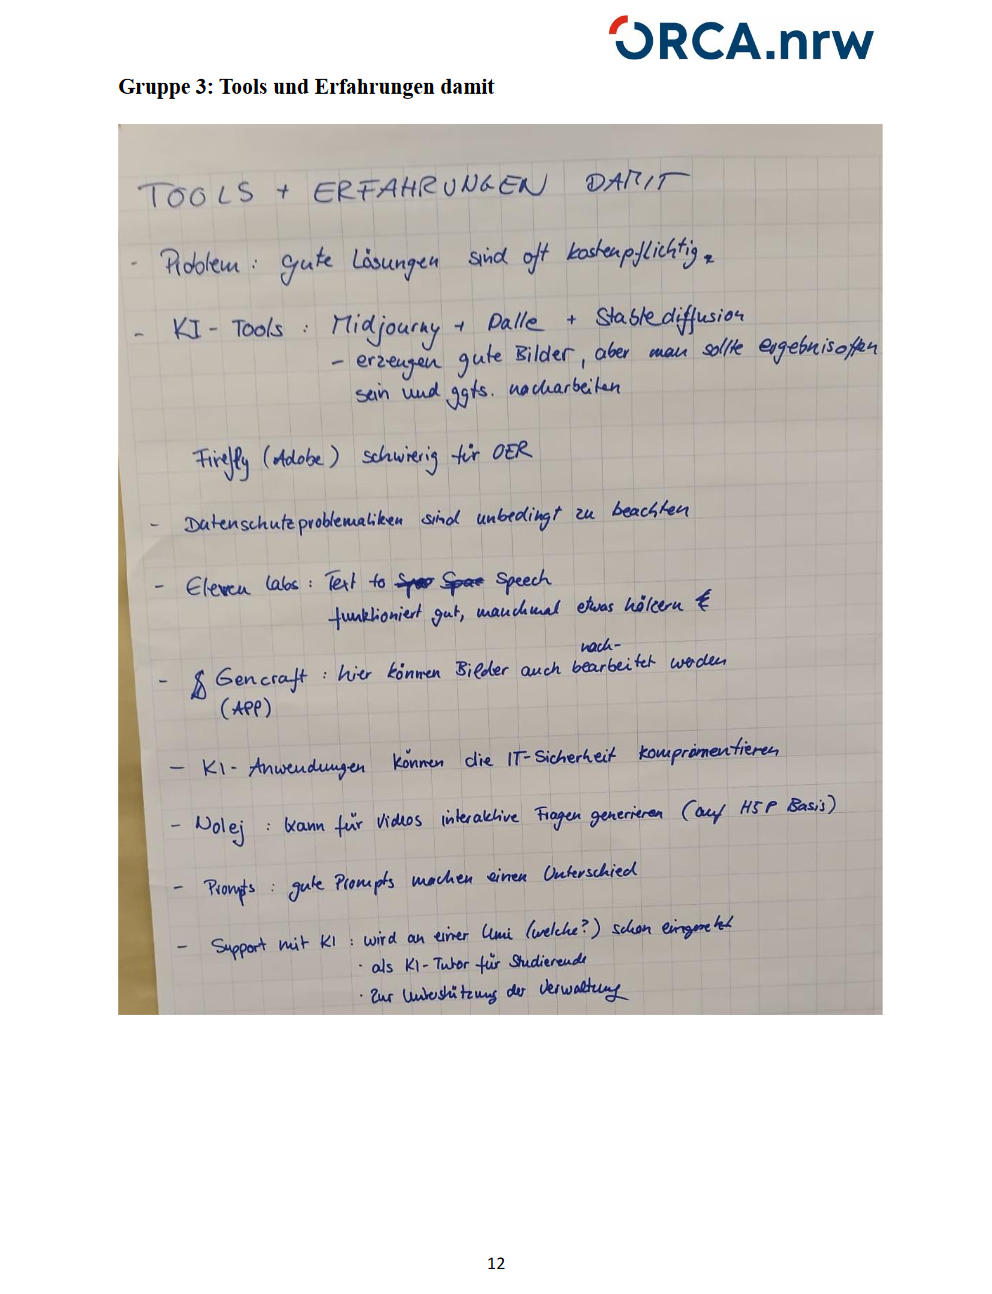 ORCA.nrw
Gruppe 3: Tools und Erfahrungen damit
TOOLS + ERFAHRUNGEN DAMIT
- Problem: gute Lösungen sind oft kostenpflichtig
- KI-Tools: Midjourny + Dalle + Stablediffusion
- erzeugen gute Bilder, aber man sollte ergebnisoffen
sein und ggfs. nacharbeiten
Firefly (Adobe) schwierig für OER
- Datenschutzproblematiken sind unbedingt zu beachten
- Eleven Labs: Text to Speech
funktioniert gut, manchmal etwas hölzern
nach-
- Gencraft: hier können Bilder auch bearbeitet werden
(APP)
- KI-Anwendungen können die IT-Sicherheit komprämentieren
- Nolej: kann für Videos interaktive Fragen generieren (auf H5P Basis)
- Prompts: gute Prompts machen einen Unterschied
- Support mit KI: wird an einer Uni (welche?) schon eingesetzt
· als KI-Tutor für Studierende
· Zur Unterstützung der Verwaltung
12